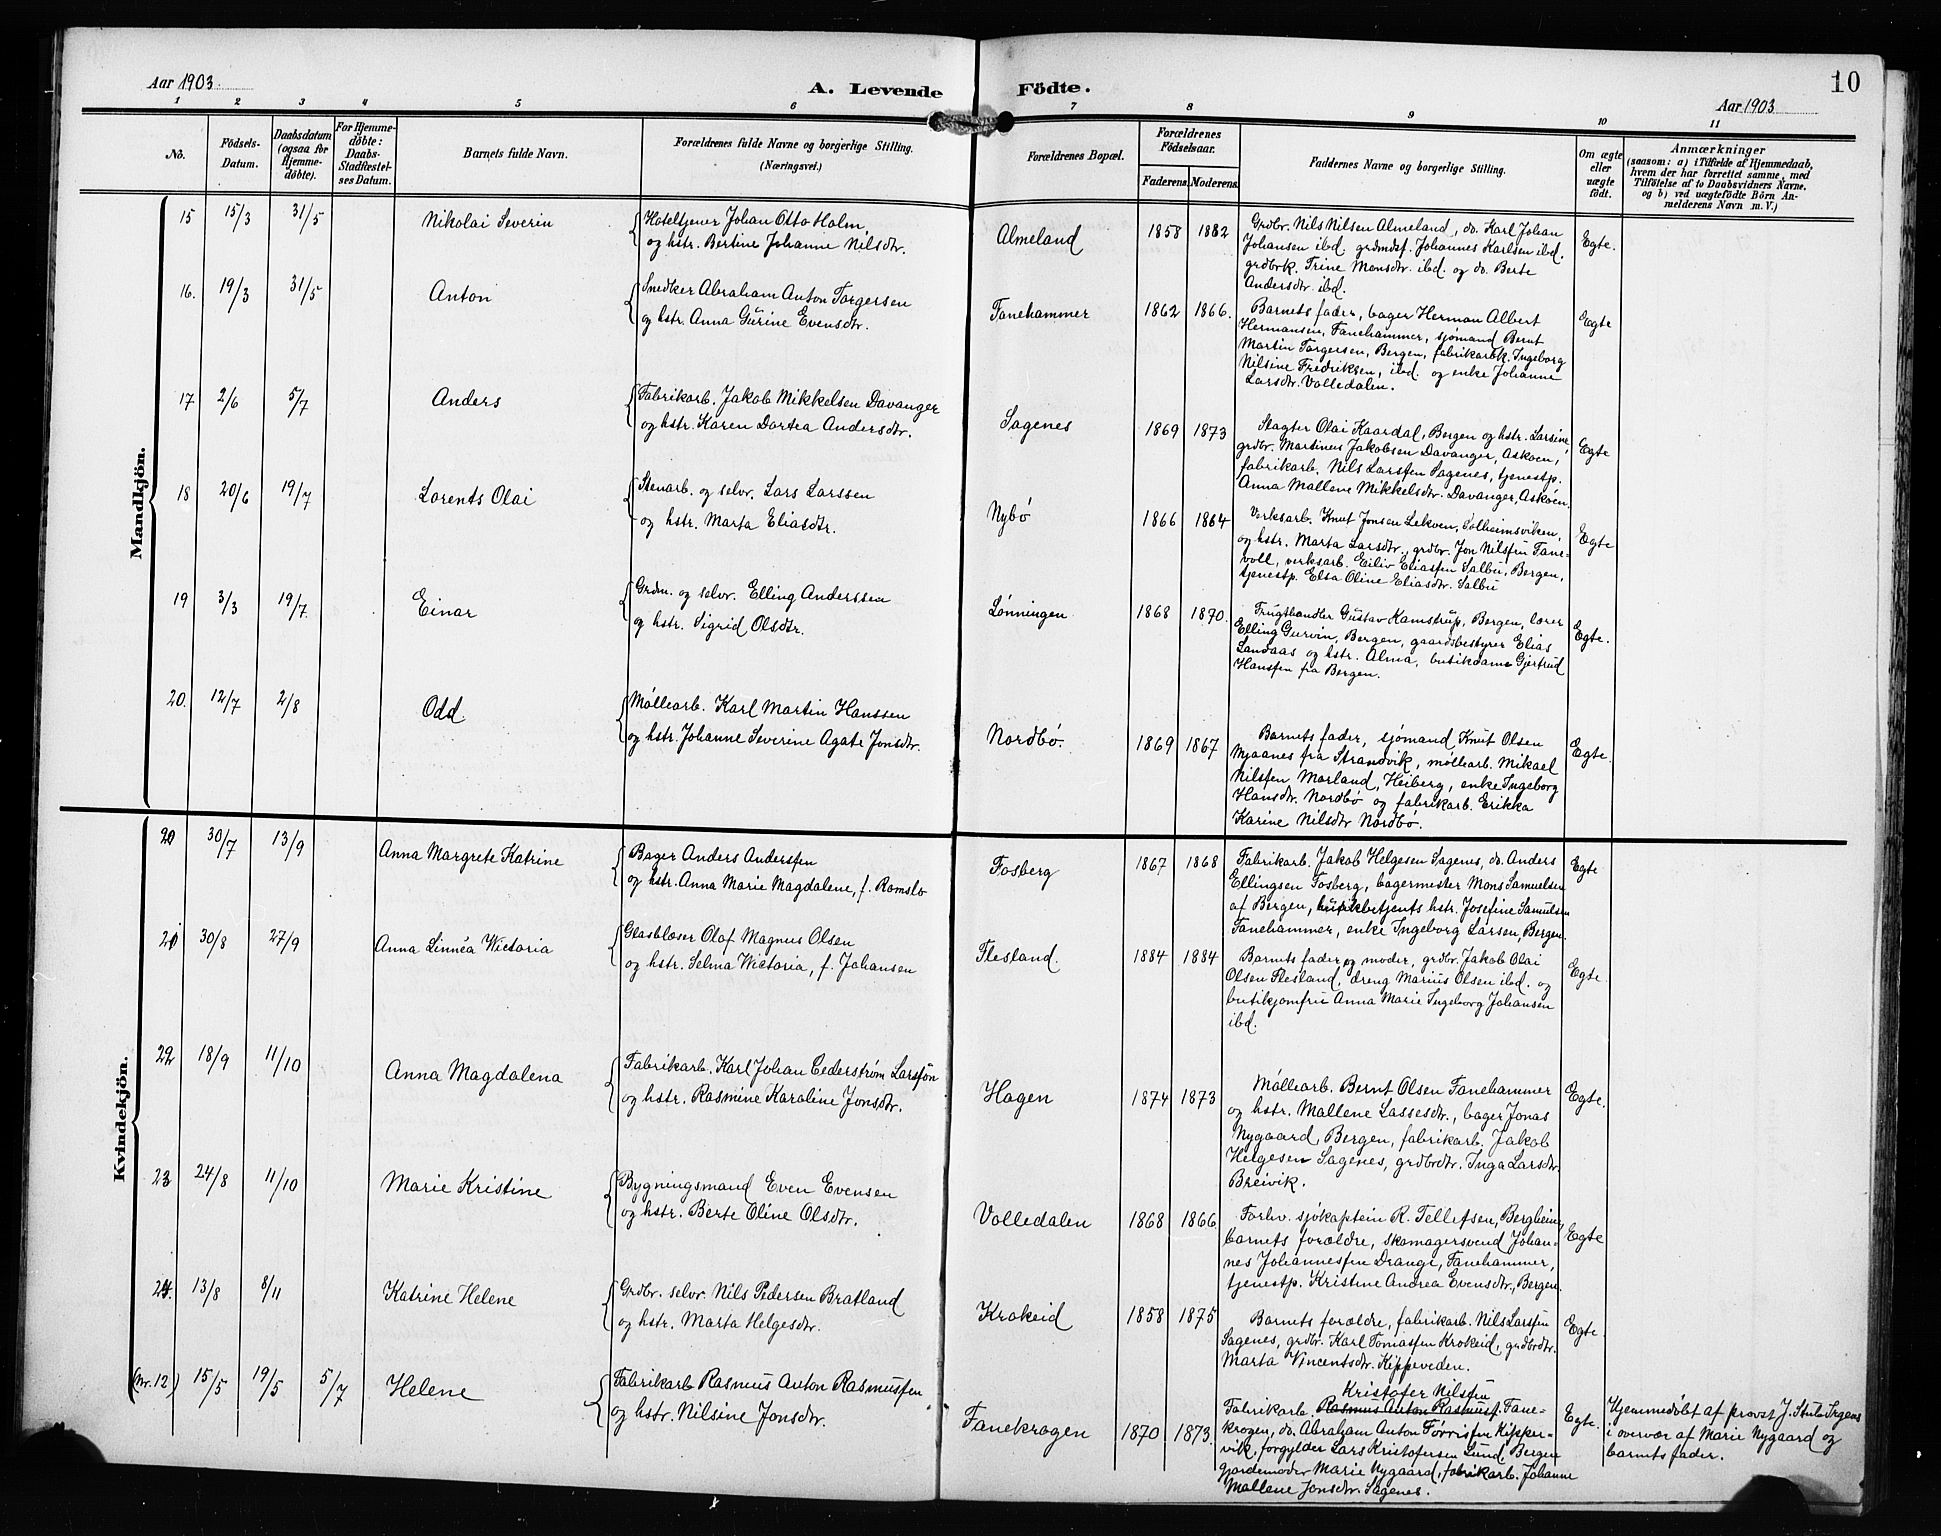 Aar 1903.
A. Levende Födte.
10
Aar 1903
1 2 3 4 5 6 7 8 9 10 11
No.
Födsels-
Datum.
Daabsdatum
(ogsaa for
Hjemme-
døbte).
For Hjemme-
døbte:
Daabs-
Stadfæstel-
ses Datum.
Barnets fulde Navn.
Forældrenes fulde Navne og borgerlige Stilling.
(Næringsvei.)
Forældrenes Bopæl.
Forældrenes
Födselsaar.
Faderens. Moderens.
Faddernes Navne og borgerlige Stilling.
Om ægte
eller
uægte
födt.
Anmærkninger
(saasom: a) i Tilfælde af Hjemmedaab,
hvem der har forrettet samme, med
Tilføielse af to Daabsvidners Navne.
og b) ved uægtefödte Börn An-
melderens Navn m. V.)
Mandkjön.
15 15/3 31/5 Nikolai Severin
Hoteltjener Johan Otto Holm
og hstr. Bertine Johanne Nilsdtr.
Almeland 1858 1882
Grdbr. Nils Nilsen Almeland, do. Karl Johan
Johansen ibd. grdmdsf. Johannes Karlsen ibd.
grdbrk. Trine Monsdtr. ibd. og do. Berte
Andersdtr. ibd.
Egte.
16. 19/3 31/5 Anton
Snedker Abraham Anton Torgersen
og hstr. Anna Gurine Evensdtr.
Fanehammer 1862 1866.
Barnets fader, bager Herman Albert
Hermansen, Fanehammer, sjømand Bernt
Martin Torgersen, Bergen, fabrikarbk. Ingeborg
Nilsine Fredriksen, ibd. og enke Johanne
Larsdtr. Volledalen.
Egte
17 2/6 5/7 Anders
Fabrikarb. Jakob Mikkelsen Davanger
og hstr. Karen Dortea Andersdtr.
Sagenes 1869 1873
Slagter Olai Kaardal, Bergen og hstr. Larsine,
grdbr. Martines Jakobsen Davanger, Askøen,
fabrikarb. Nils Larssen Sagenes, tjenestp.
Anna Mallene Mikkelsdtr. Davanger, Askøen.
Egte
18 20/6 19/7 Lorents Olai
Stenarb. og selv. Lars Larssen
og hstr. Marta Eliasdtr.
Nybø 1866 1864
Verksarb. Knut Jonsen Lekven, Solheimsviken,
og hstr. Marta Larsdtr., grdbr. Jon Nilssen Fane-
voll, verksarb. Eiliv Eliassen Salbu, Bergen,
tjenestp. Elsa Oline Eliasdtr. Salbu
Egte
19 3/3 19/7. Einar
Grdm. og selv. Elling Anderssen
og hstr. Sigrid Olsdtr.
Lønningen 1868 1870.
Frugthandler Gustav Kamstrup, Bergen, lærer
Elling Gurvin, Bergen, gaardsbestyrer Elias
Landaas og hstr. Alma, butikdame Gjertrud
Hanssen fra Bergen.
Egte.
20. 12/7 2/8 Odd.
Møllearb. Karl Martin Hanssen
og hstr. Johanne Severine Agate Jonsdtr.
Nordbø. 1869 1867
Barnets fader, sjømand Knut Olsen
Mjaanes fra Strandvik, møllearb. Mikael
Nilssen Morland, Heiberg, enke Ingeborg
Hansdtr. Nordbø og fabrikarb. Erikka
Karine Nilsdtr Nordbø.
Egte.
Kvindekjön.
20 30/7 13/9 Anna Margrete Katrine
Bager Anders Anderssen
og hstr. Anna Marie Magdalene, f. Romslo
Fosberg 1867 1868
Fabrikarb. Jakob Helgesen Sagenes, do. Anders
Ellingsen Fosberg, bagermester Mons Samuelsen
af Bergen, betjents hstr. Josefine Samuelsen
Fanehammer, enke Ingeborg Larsen, Bergen.
Egte
21 30/8 27/9 Anna Linnéa Wictoria
Glasblæser Olof Magnus Olsen
og hstr. Selma Wictoria, f. Johansen
Flesland. 1884 1884
Barnets fader og moder, grdbr. Jakob Olai
Olsen Flesland, dreng Marius Olsen ibd. og
butikjomfru Anna Marie Ingeborg Johansen
ibd.
Egte.
22 18/9 11/10 Anna Magdalena
Fabrikarb. Karl Johan Cederstrøm Larsson
og hstr. Rasmine Karoline Jonsdtr.
Hagen 1874 1873
Møllearb. Bernt Olsen Fanehammer
og hstr. Mallene Lassesdtr., bager Jonas
Nygaard, Bergen, fabrikarb. Jakob
Helgesen Sagenes, grdbrdtr. Inga Larsdtr.
Breivik.
Egte.
23 24/8 11/10 Marie Kristine
Bygningsmand Even Evensen
og hstr. Berte Oline Olsdtr.
Volledalen 1868 1866.
Forhv. sjökaptein R. Tellefsen, Bergheim,
barnets forældre, skomagersvend Johan-
nes Johannessen Drange, Fanehammer,
tjenestp. Kristine Andrea Evensdtr, Bergen.
Egte
24. 13/8 8/11 Katrine Helene
Grdbr. selv. Nils Pedersen Bratland
og hstr. Marta Helgesdtr.
Krokeid 1858 1875
Barnets forældre, fabrikarb. Nils Larssen
Sagenes, grdbr. Karl Tomassen Krokeid, grdbrdtr.
Marta Vincentsdtr. Kippeveden.
Egte.
(Nr. 12) 15/5 19/5 5/7 Helene
Fabrikarb Rasmus Anton Rasmussen
og hstr. Nilsine Jonsdtr.
Fanekrogen 1870 1873.
Kristofer Nilssen
Fabrikarb. Rasmus Anton Rasmuss. Fane-
krogen, do. Abraham Anton Tørrissen Kipper-
vik, forgylder Lars Kristofersen Lund, Bergen
gjordemoder Marie Nygaard, fabrikarb. Johanne
Mallene Jonsdtr. Sagenes.
Egte.
Hjemmedøbt af provst J. Stub
i overvær af Marie Nygaard og
barnets fader.